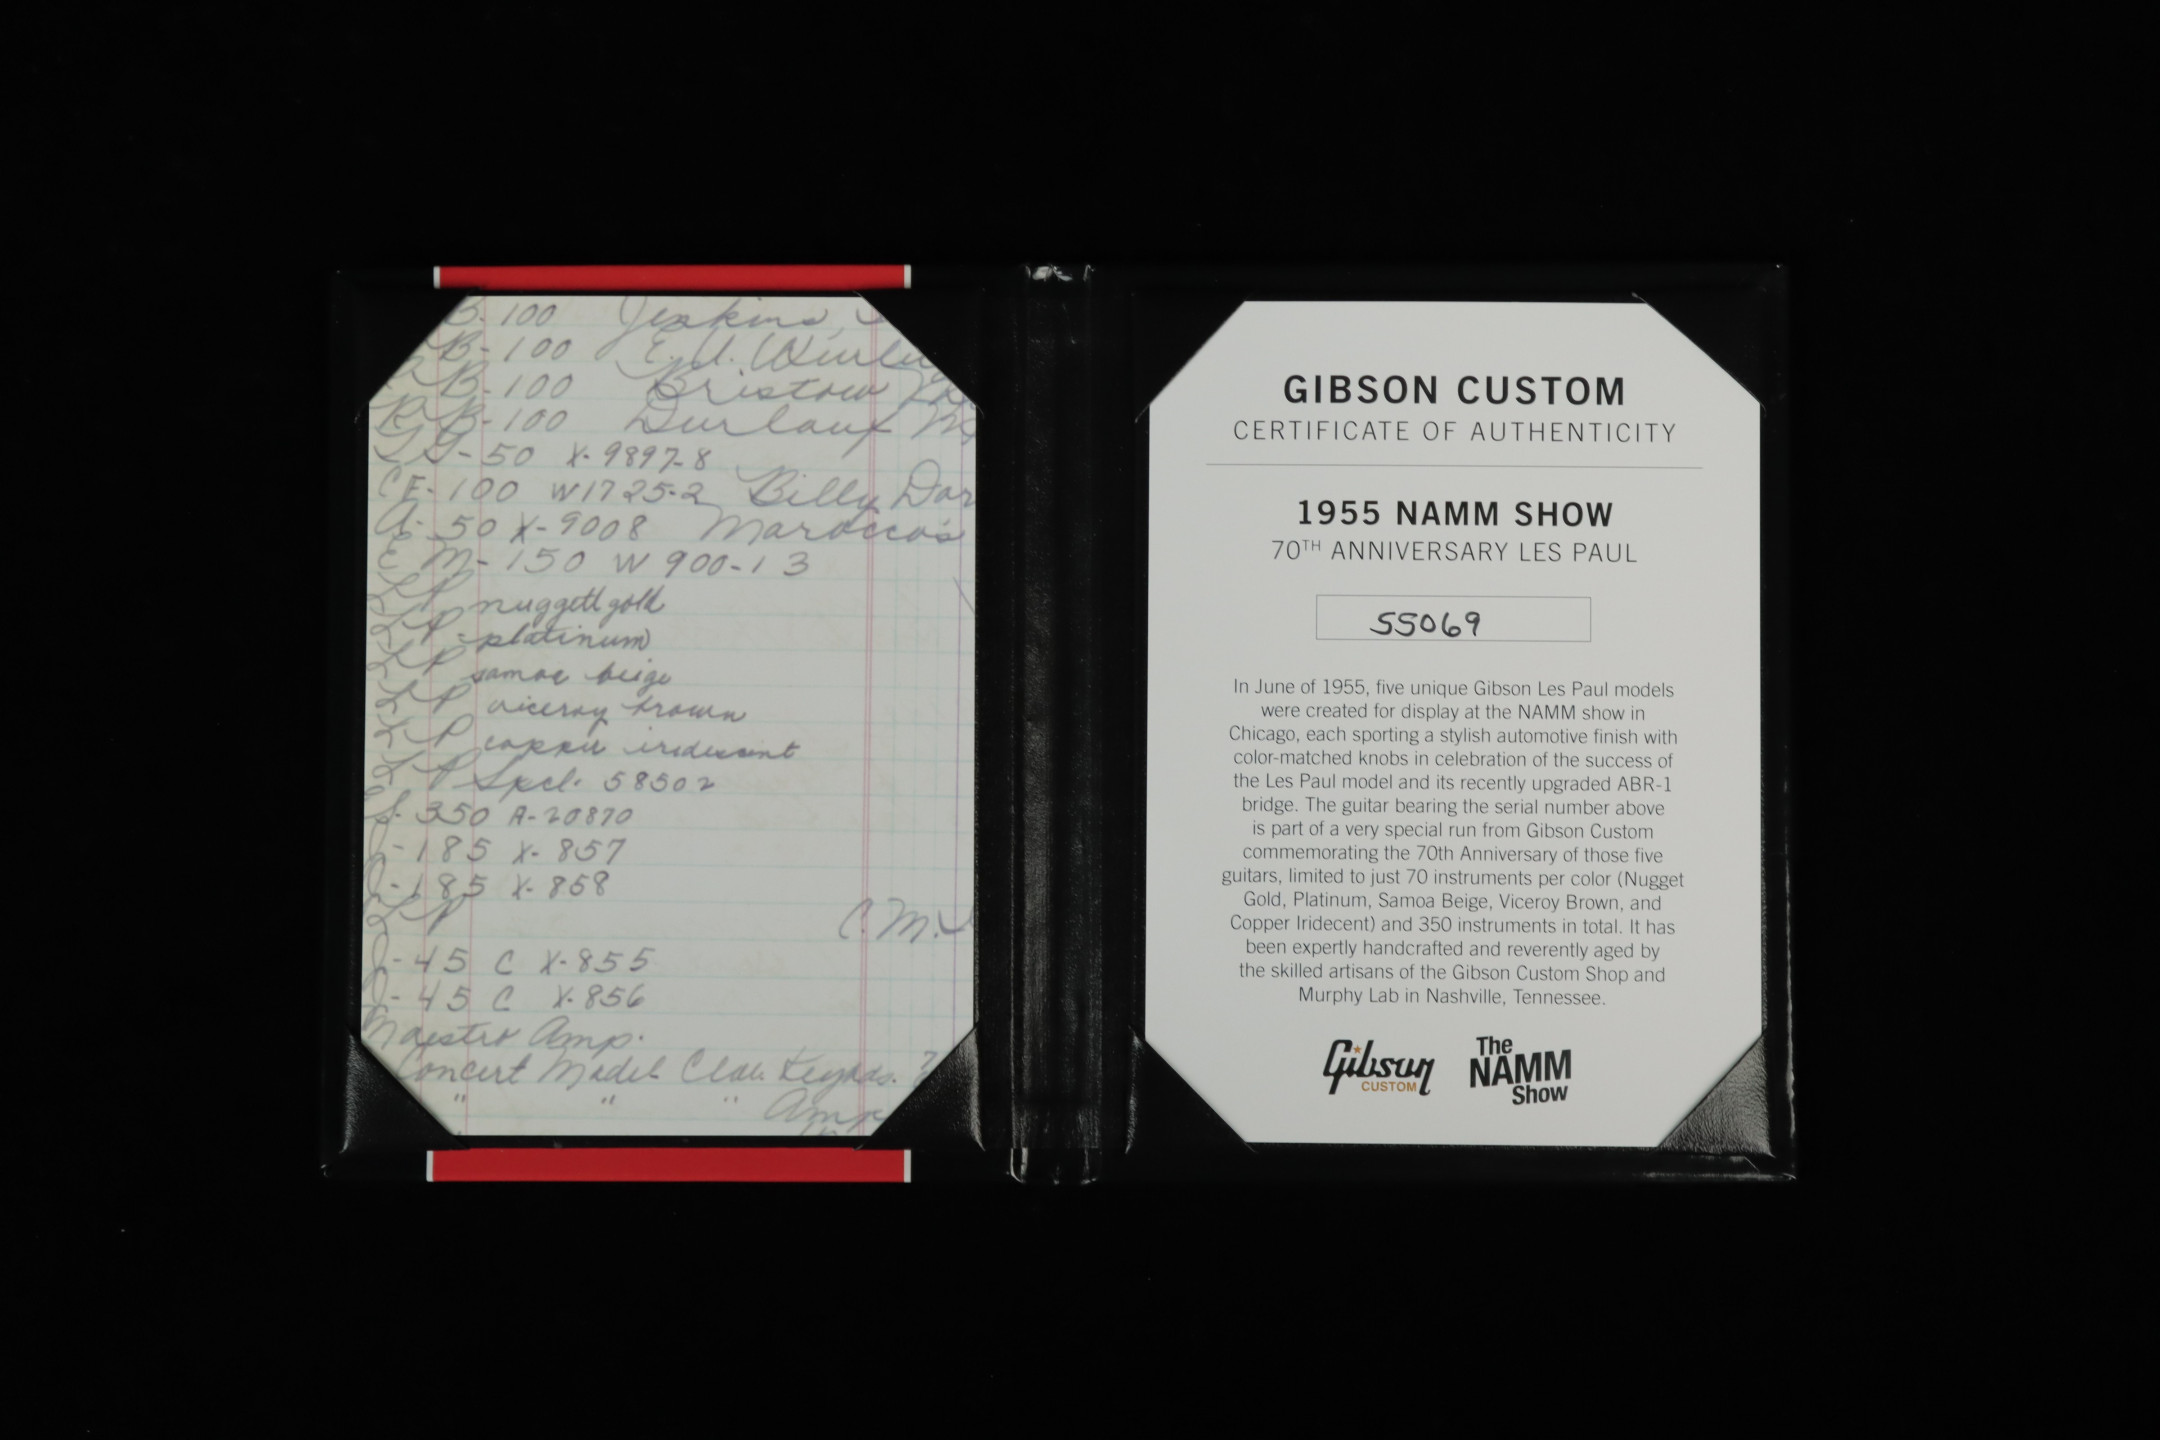 B-100 Jenkins,
B-100 E. U.
B-100 Bristow
B-100 Durlauf
GA-50 X-9897-8
CF-100 W1725-2 Billy Dar
A-50 X-9008 Marocco's
E M-150 W 900-13
LP nuggett gold
LP - platinum
LP samoa beige
LP viceroy brown
LP copper iridescent
LP Spcl. 58502
350 A-20870
J-185 X-857
J-185 X-858
LP C.M.
J-45 C X-855
J-45 C X-856
Maestro Amp.
Concert Model Clav.
" " " Amp
GIBSON CUSTOM
CERTIFICATE OF AUTHENTICITY
1955 NAMM SHOW
70TH ANNIVERSARY LES PAUL
55069
In June of 1955, five unique Gibson Les Paul models
were created for display at the NAMM show in
Chicago, each sporting a stylish automotive finish with
color-matched knobs in celebration of the success of
the Les Paul model and its recently upgraded ABR-1
bridge. The guitar bearing the serial number above
is part of a very special run from Gibson Custom
commemorating the 70th Anniversary of those five
guitars, limited to just 70 instruments per color (Nugget
Gold, Platinum, Samoa Beige, Viceroy Brown, and
Copper Iridecent) and 350 instruments in total. It has
been expertly handcrafted and reverently aged by
the skilled artisans of the Gibson Custom Shop and
Murphy Lab in Nashville, Tennessee.
Gibson
CUSTOM
The
NAMM
Show